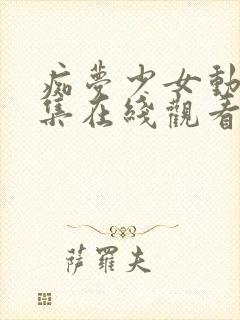 痴夢少女動
集在綫觀看
薩羅夫